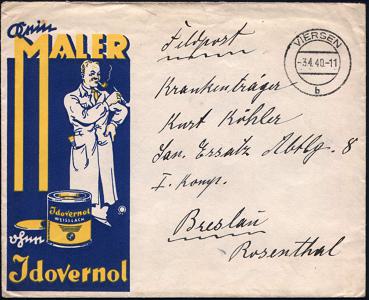 Kein
MALER
Idovernol
WEISSLACK
ohne
Idovernol
VIERSEN
-3.4.40.-11
b
Feldpost
Krankenträger
Kurt Köhler
San. Ersatz Abtlg. 8
I. Komp.
Breslau
Rosenthal